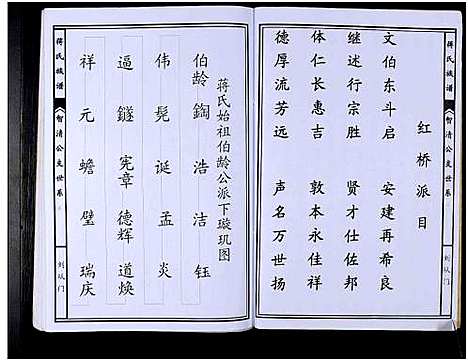 蒋氏族谱
智清公支世系
红桥派目
文伯东斗启 安建再希良
继述行宗胜 贤才仕佐邦
体仁长惠吉 敦本永佳祥
德厚流芳远 声名万世扬
蒋氏始祖伯龄公派下璇玑图
伯龄 鋾 浩 洁 钰
伟 髡 诞 孟 炎
逼 鐩 宪章 德辉 道焕
祥 元 蟾 璧 瑞庆
蒋氏族谱
智清公支世系